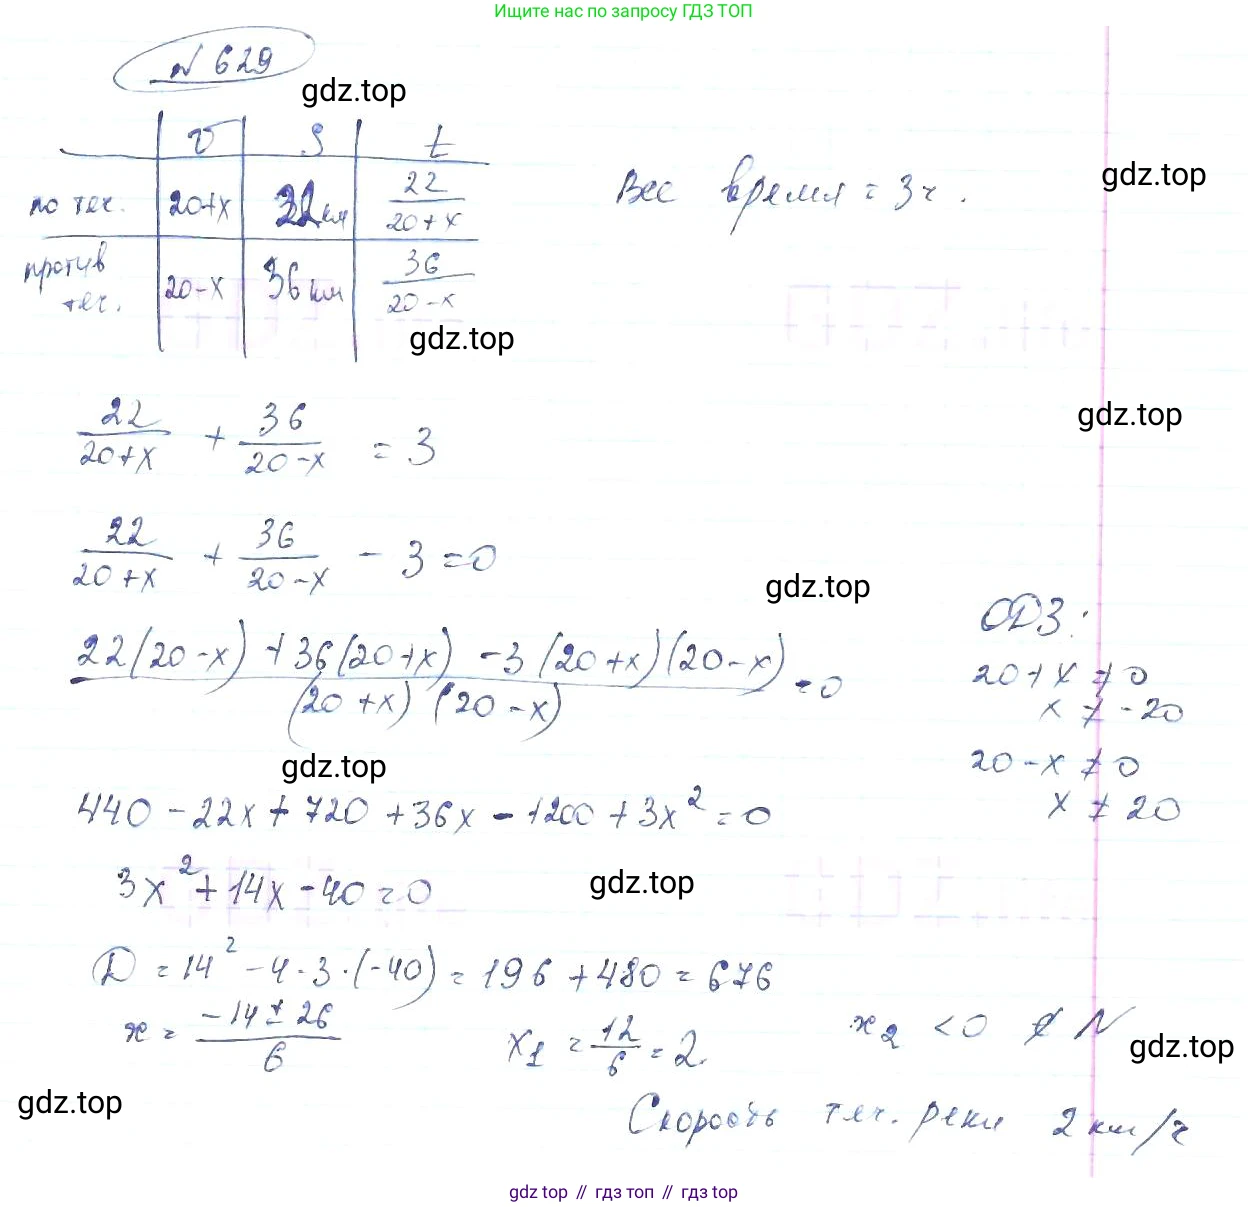 Ищите нас по запросу ГДЗ ТОП
№ 629
gdz.top
v S t
по теч. 20+x 32 км 22/(20+x)
Вес время = 3ч.
gdz.top
против теч. 20-x 36 км 36/(20-x)
gdz.top
gdz.top
22/(20+x) + 36/(20-x) = 3
22/(20+x) + 36/(20-x) - 3 = 0
gdz.top
ОДЗ:
(22(20-x) + 36(20+x) - 3(20+x)(20-x))/((20+x)(20-x)) = 0
20+x ≠ 0
x ≠ -20
20-x ≠ 0
x ≠ 20
gdz.top
440 - 22x + 720 + 36x - 1200 + 3x² = 0
3x² + 14x - 40 = 0
gdz.top
D = 14² - 4·3·(-40) = 196 + 480 = 676
x = (-14 ± 26)/6 x₁ = 12/6 = 2 x₂ < 0 ∉ N
gdz.top
gdz.top
Скорость теч. реки 2 км/ч
gdz top // гдз топ // gdz top